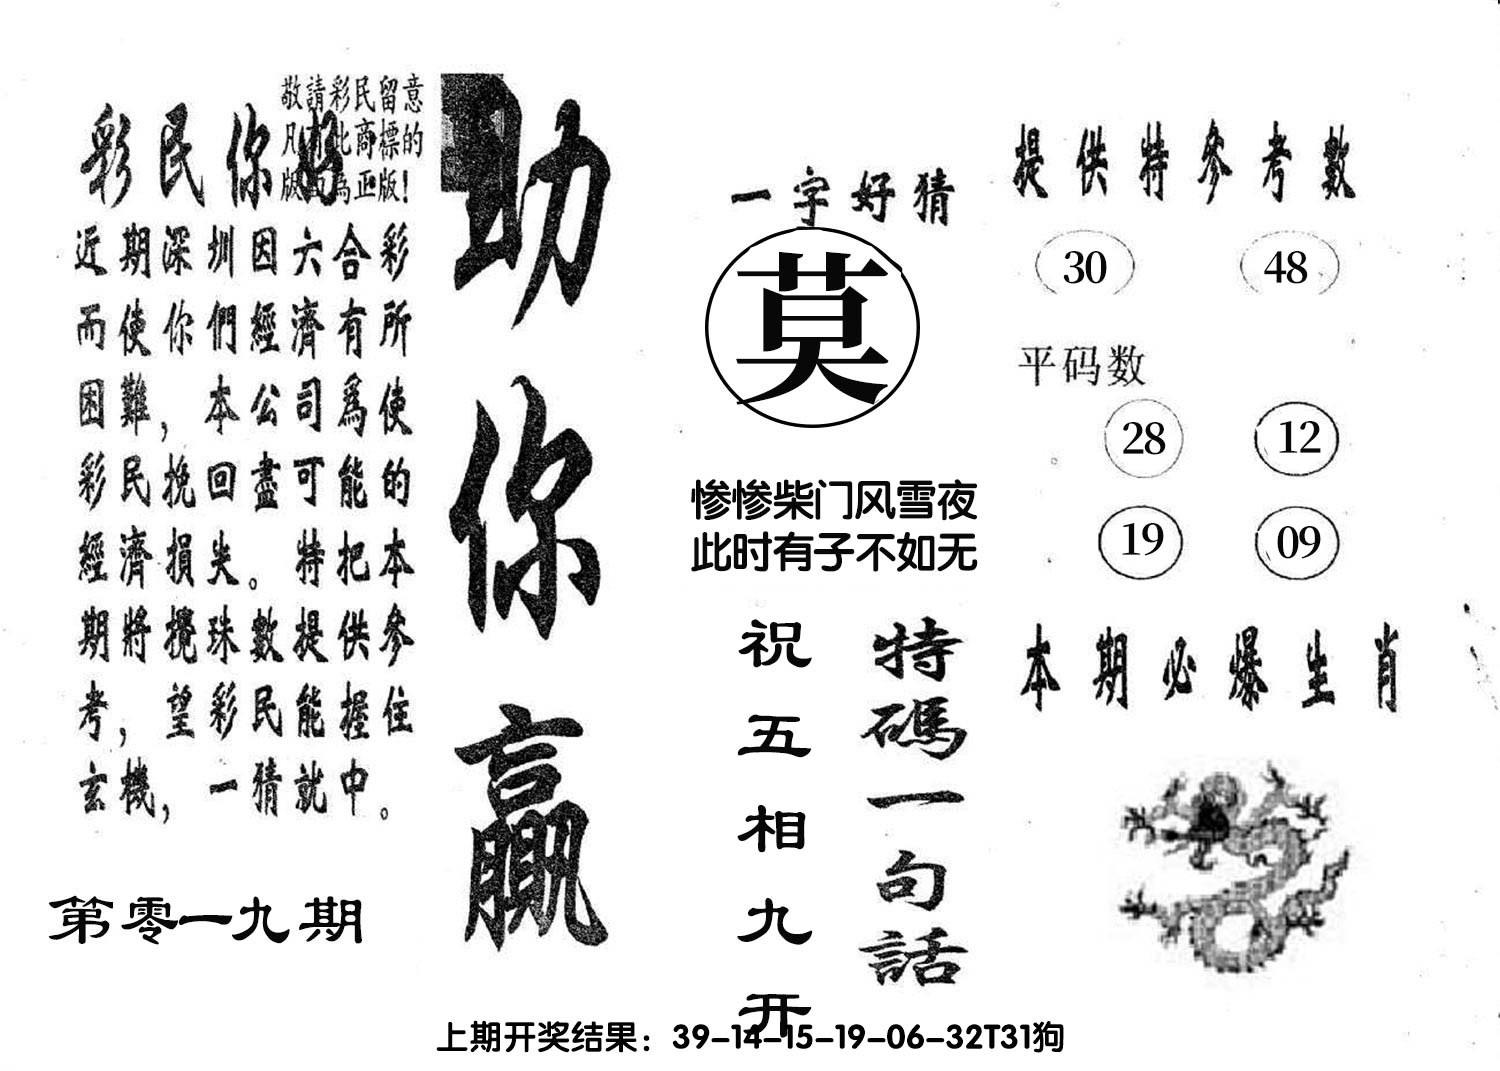 敬請彩民留意
凡有此商標的
版面為正版！
彩民你好
近期深圳因六合彩
而使你們經濟有所
困難，本公司爲使
彩民挽回盡可能的
經濟損失。特把本
期將攪珠數提供參
考，望彩民能握住
玄機，一猜就中。
第零一九期
助你贏
一字好猜
莫
惨惨柴门风雪夜
此时有子不如无
特碼一句話
祝五相九开
提供特參考數
30 48
平码数
28 12
19 09
本期必爆生肖
上期开奖结果：39-14-15-19-06-32T31狗